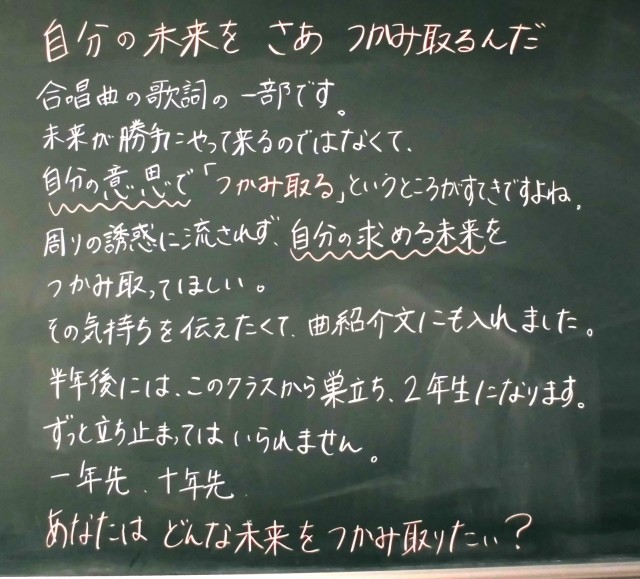 自分の未来を さあ つかみ取るんだ
合唱曲の歌詞の一部です。
未来が勝手にやって来るのではなくて、
自分の意思で「つかみ取る」というところがすてきですよね。
周りの誘惑に流されず、自分の求める未来を
つかみ取ってほしい。
その気持ちを伝えたくて、曲紹介文にも入れました。
半年後には、このクラスから巣立ち、2年生になります。
ずっと立ち止まってはいられません。
一年先、十年先、
あなたは どんな未来をつかみ取りたい?